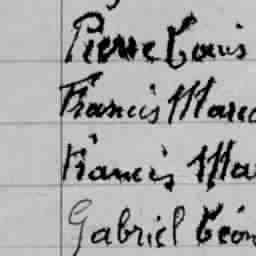 Pierre Louis
Francis Marc
Francis Ma
Gabriel Léon